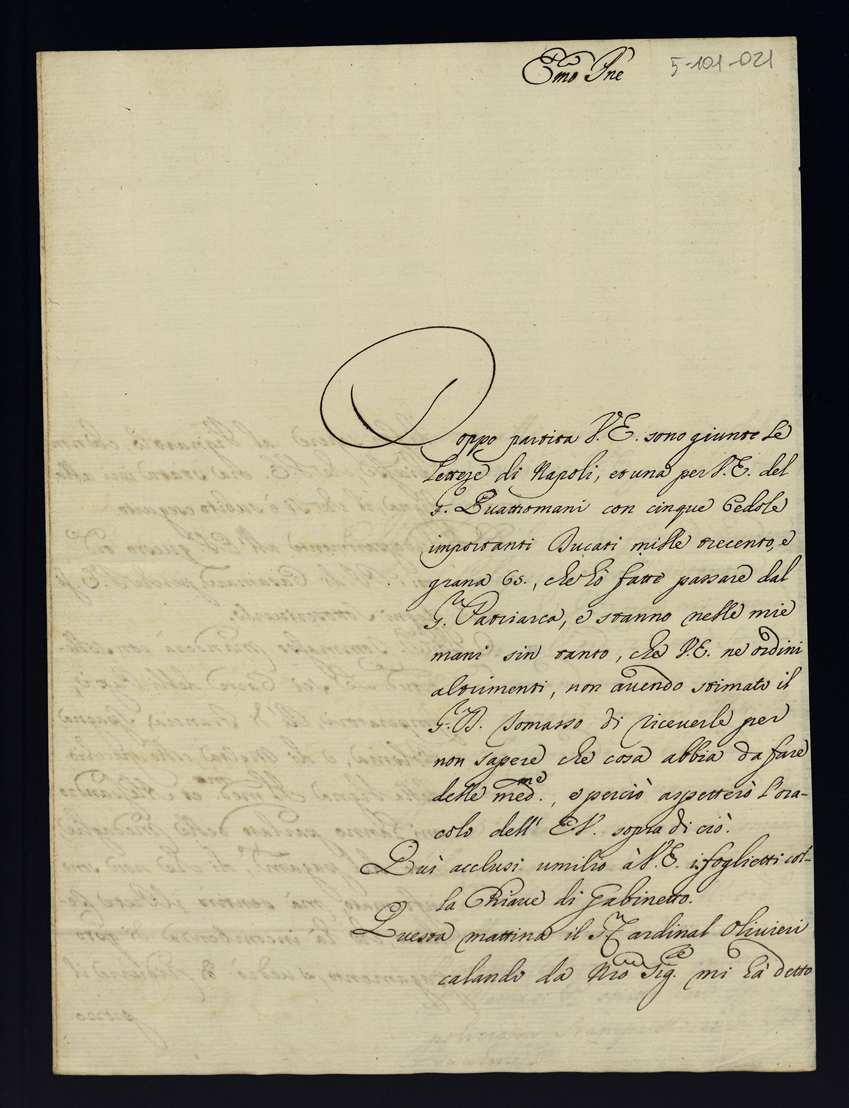 Emo Pñe
5-101-021
Doppo partita V.E. sono giunte le
lettere di Napoli, et una per V.E. del
S. Quattromani con cinque Cedole
importanti Ducati mille trecento, e
grana 65., che hò fatte passare dal
S.r Patriarca, e stanno nelle mie
mani sin tanto, che V.E. ne ordini
altrimenti, non avendo stimato il
S.r D. Tomasso di riceverle per
non sapere che cosa abbia da fare
delle med.me, e perciò aspetterò l'ora-
colo dell' EV. sopra di ciò.
Quì acclusi umilio à V.E. i foglietti col-
la Chiave di Gabinetto.
Questa mattina il S.r Cardinal Olivieri
calando da Nro Sig.re mi hà detto